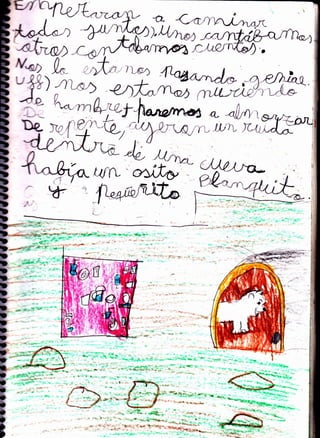 Empezaron a caminar
todos juntos, unos cantábamos
otros contabamos cuentos.
Nos lo estanos pasando genial.
Uff) nos estanos muriendo
de hambre paremos a almorzar
De repente, oyeron un ruido
dentro de una cueva
había un osito Blanquito
y pequeñito